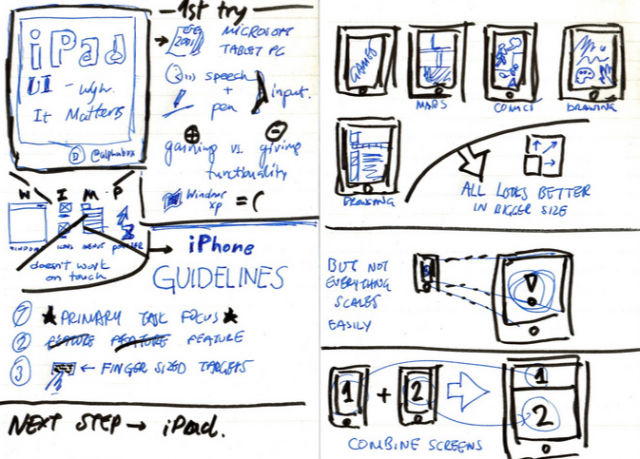 iPad
UI - why
It Matters
@alphabux
1st try
2001
MICROSOFT
TABLET PC
speech
+
pen
input.
gaining vs giving
functionality
Windows
XP
= (
W I M P
WINDOW ICONS MENUS POINTER
doesn't work
on touch
→ iPhone
GUIDELINES
1 ★ PRIMARY TASK FOCUS ★
2 FEATURE FEATURE FEATURE
3 ← FINGER SIZED TARGETS
NEXT STEP → iPad.
GAMES
MAPS
COMICS
DRAWING
BROWSING
ALL LOOKS BETTER
IN BIGGER SIZE
BUT NOT
EVERYTHING
SCALES
EASILY
!
1 + 2
1
2
COMBINE SCREENS